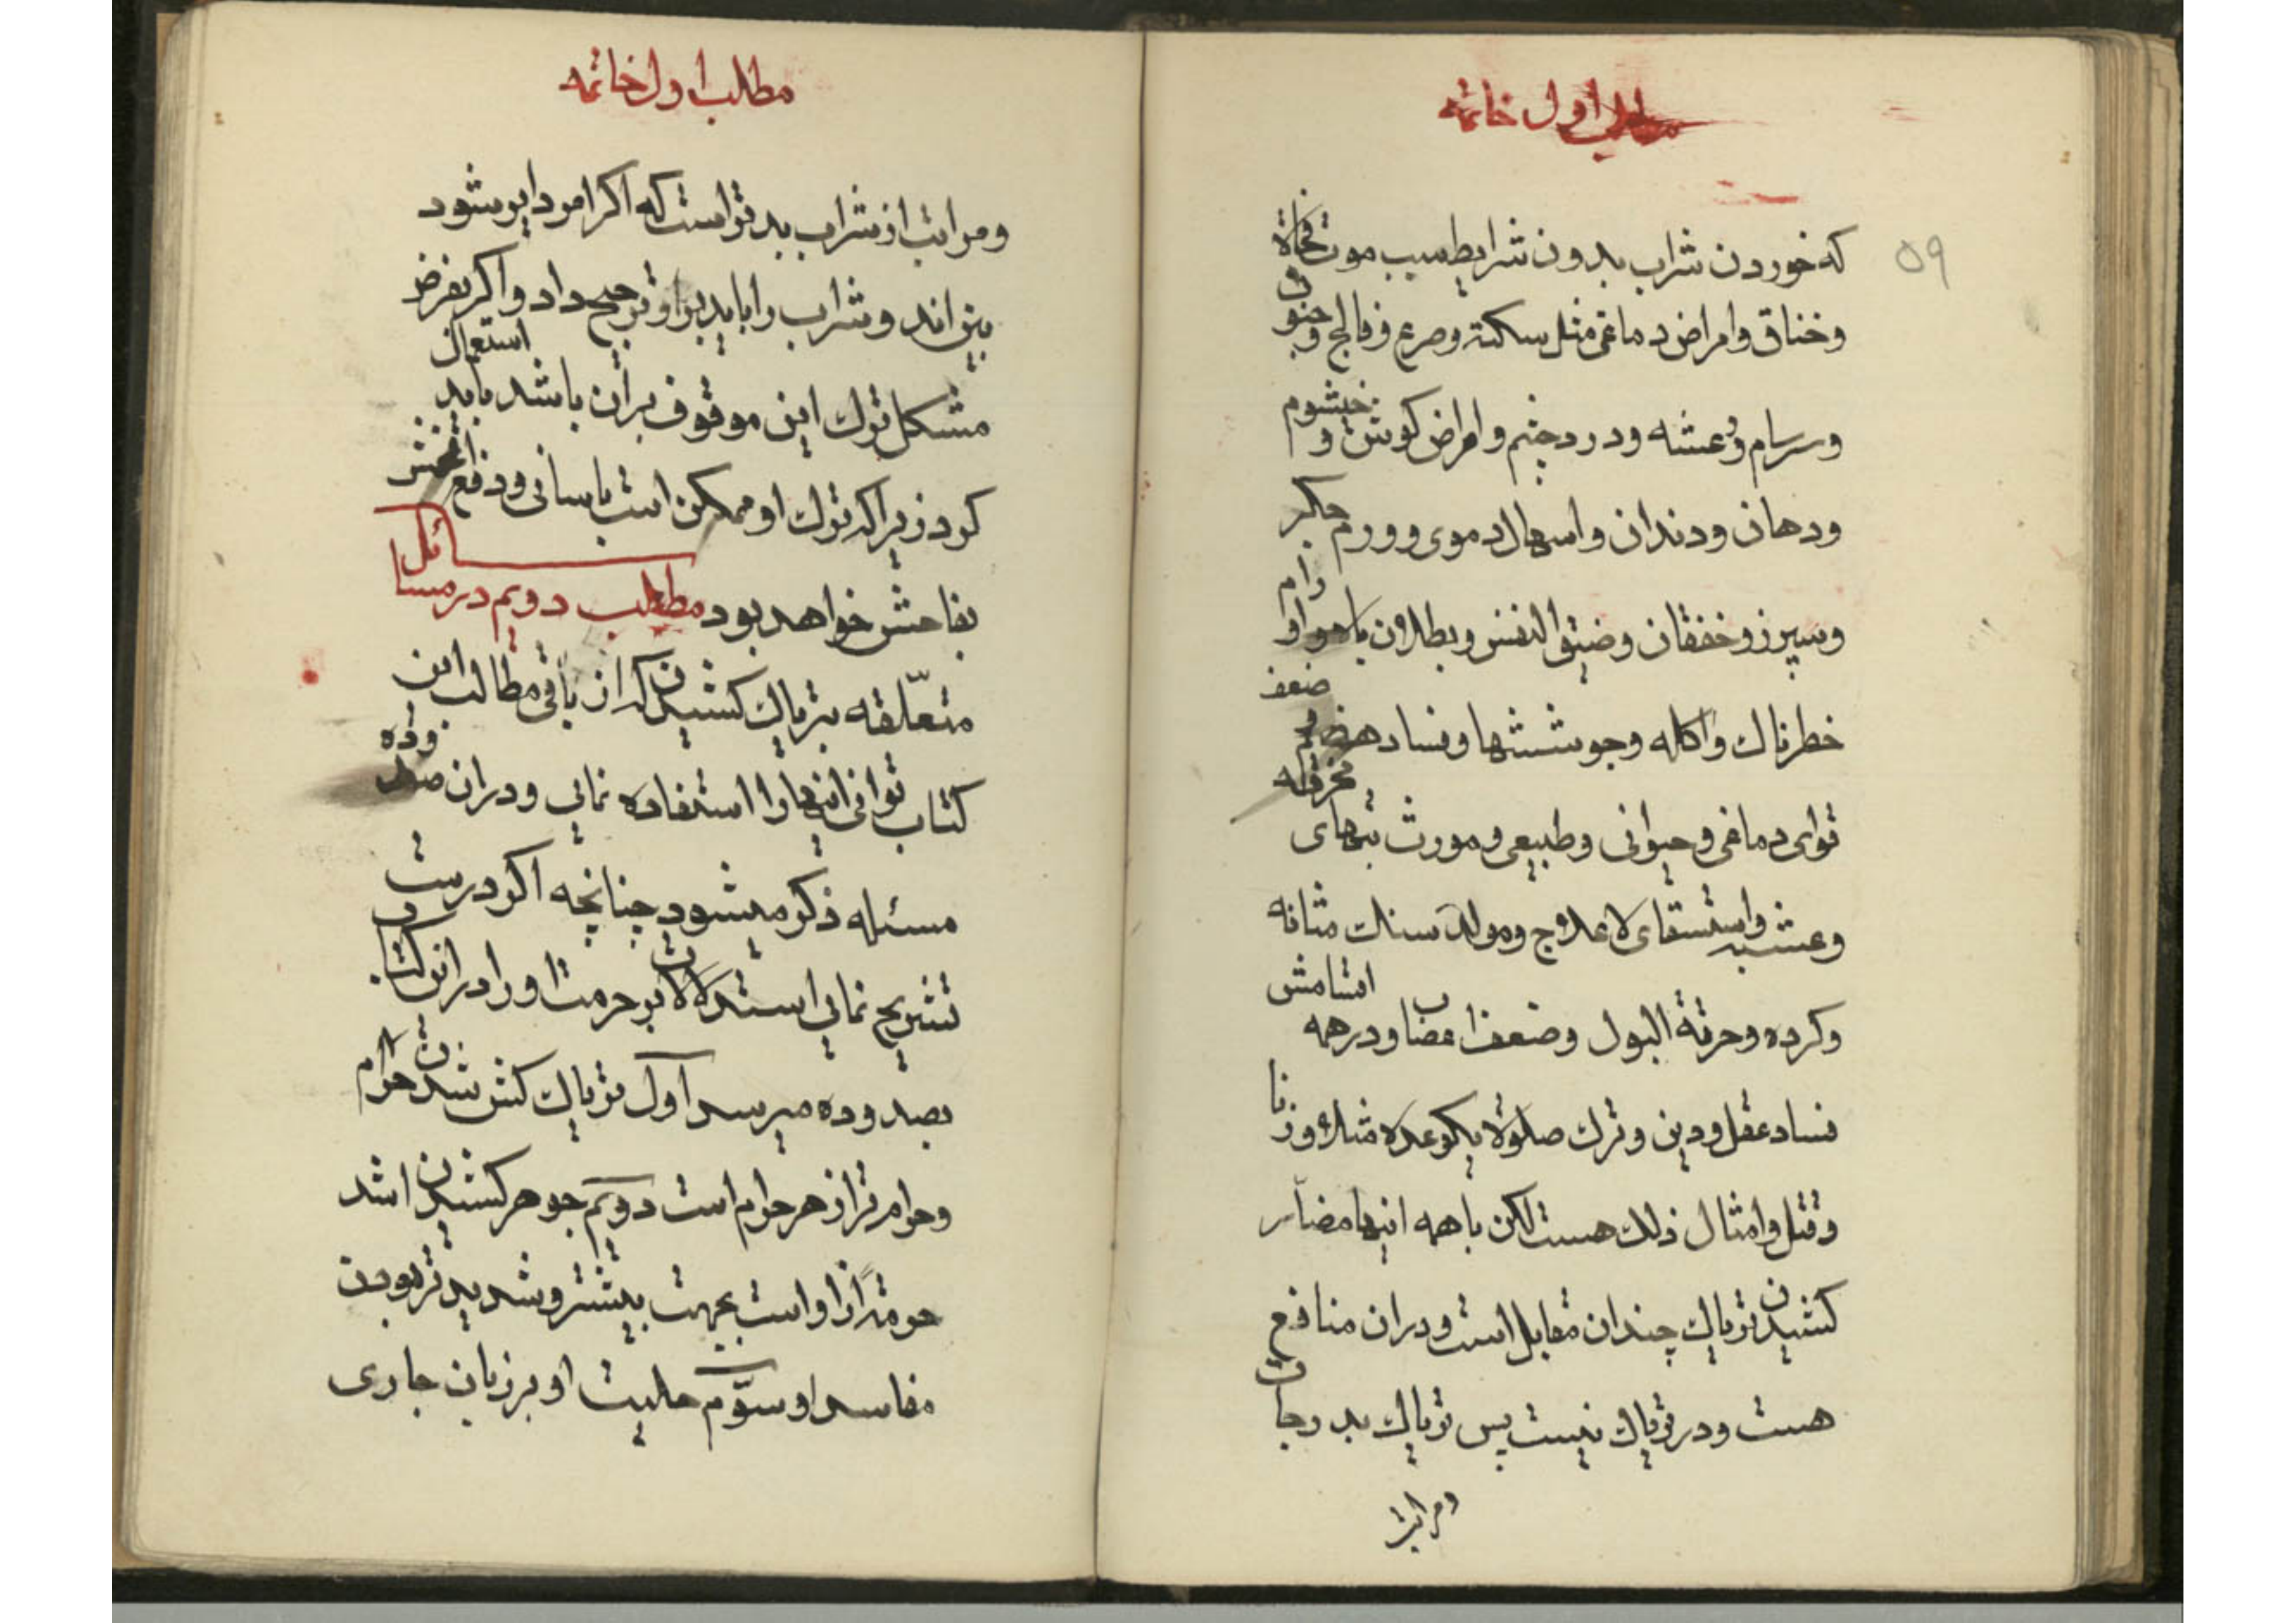 مطلب اول خاتمه
۵۹
که خوردن شراب بدون شرایط سبب موت فجأة
وخناق وامراض دماغی مثل سکته وصرع وفالج وجنون
وسرسام ورعشه ودرد چشم وامراض کوش و خیشوم
ودهان ودندان واسهال دموی وورم جکر
وسپرز وخفقان وضیق النفس وبطلان باه واورام
خطرناك واکله وجوششها وفساد هضم ضعف
قوای دماغی وحیوانی وطبیعی ومورث تبهای محرقه
وغشیه واستسقای لاعلاج ومولد سنك مثانه
وکرده وحرقة البول وضعف اعصاب ودر همه اقسامش
فساد عقل ودین وترك صلوة یکوعده مثلا وزنا
وقتل وامثال ذلك هست لکن با همه اینها مضار
کشیدن تریاك چندان مقابل است ودران منافع
هست ودر تریاك نیست پس تریاك بدرجات
ومراتب
مطلب اول خاتمه
ومراتب از شراب بدتر است که اکر امر دایر شود
بین اند وشراب را باید براو ترجیح داد واکر بفرض
مشکل ترك این موقوف بران باشد باید استعمال
کرد زیراکه ترك او ممکن است باسانی ودفع افحش
بفاحش خواهد بود مطلب دویم در مسائل
متعلقه بتریاك کشیدن که از باقی مطالب این
کتاب توانی اینها را استفاده نمایی ودران صد وده
مسئله ذکر میشود چنانچه اکر درست
تشریح نمایی استدلالات بر حرمت او را در این کتاب
بصد وده میرسد اول تریاك کش شدن حرام
وحرام تر از هر حرام است دویم جوهر کشیدن اشد
حرمة از او است بجهت بیشتر وشدید تر بودن
مفاسد او سوّم حلیت او بر زبان جاری